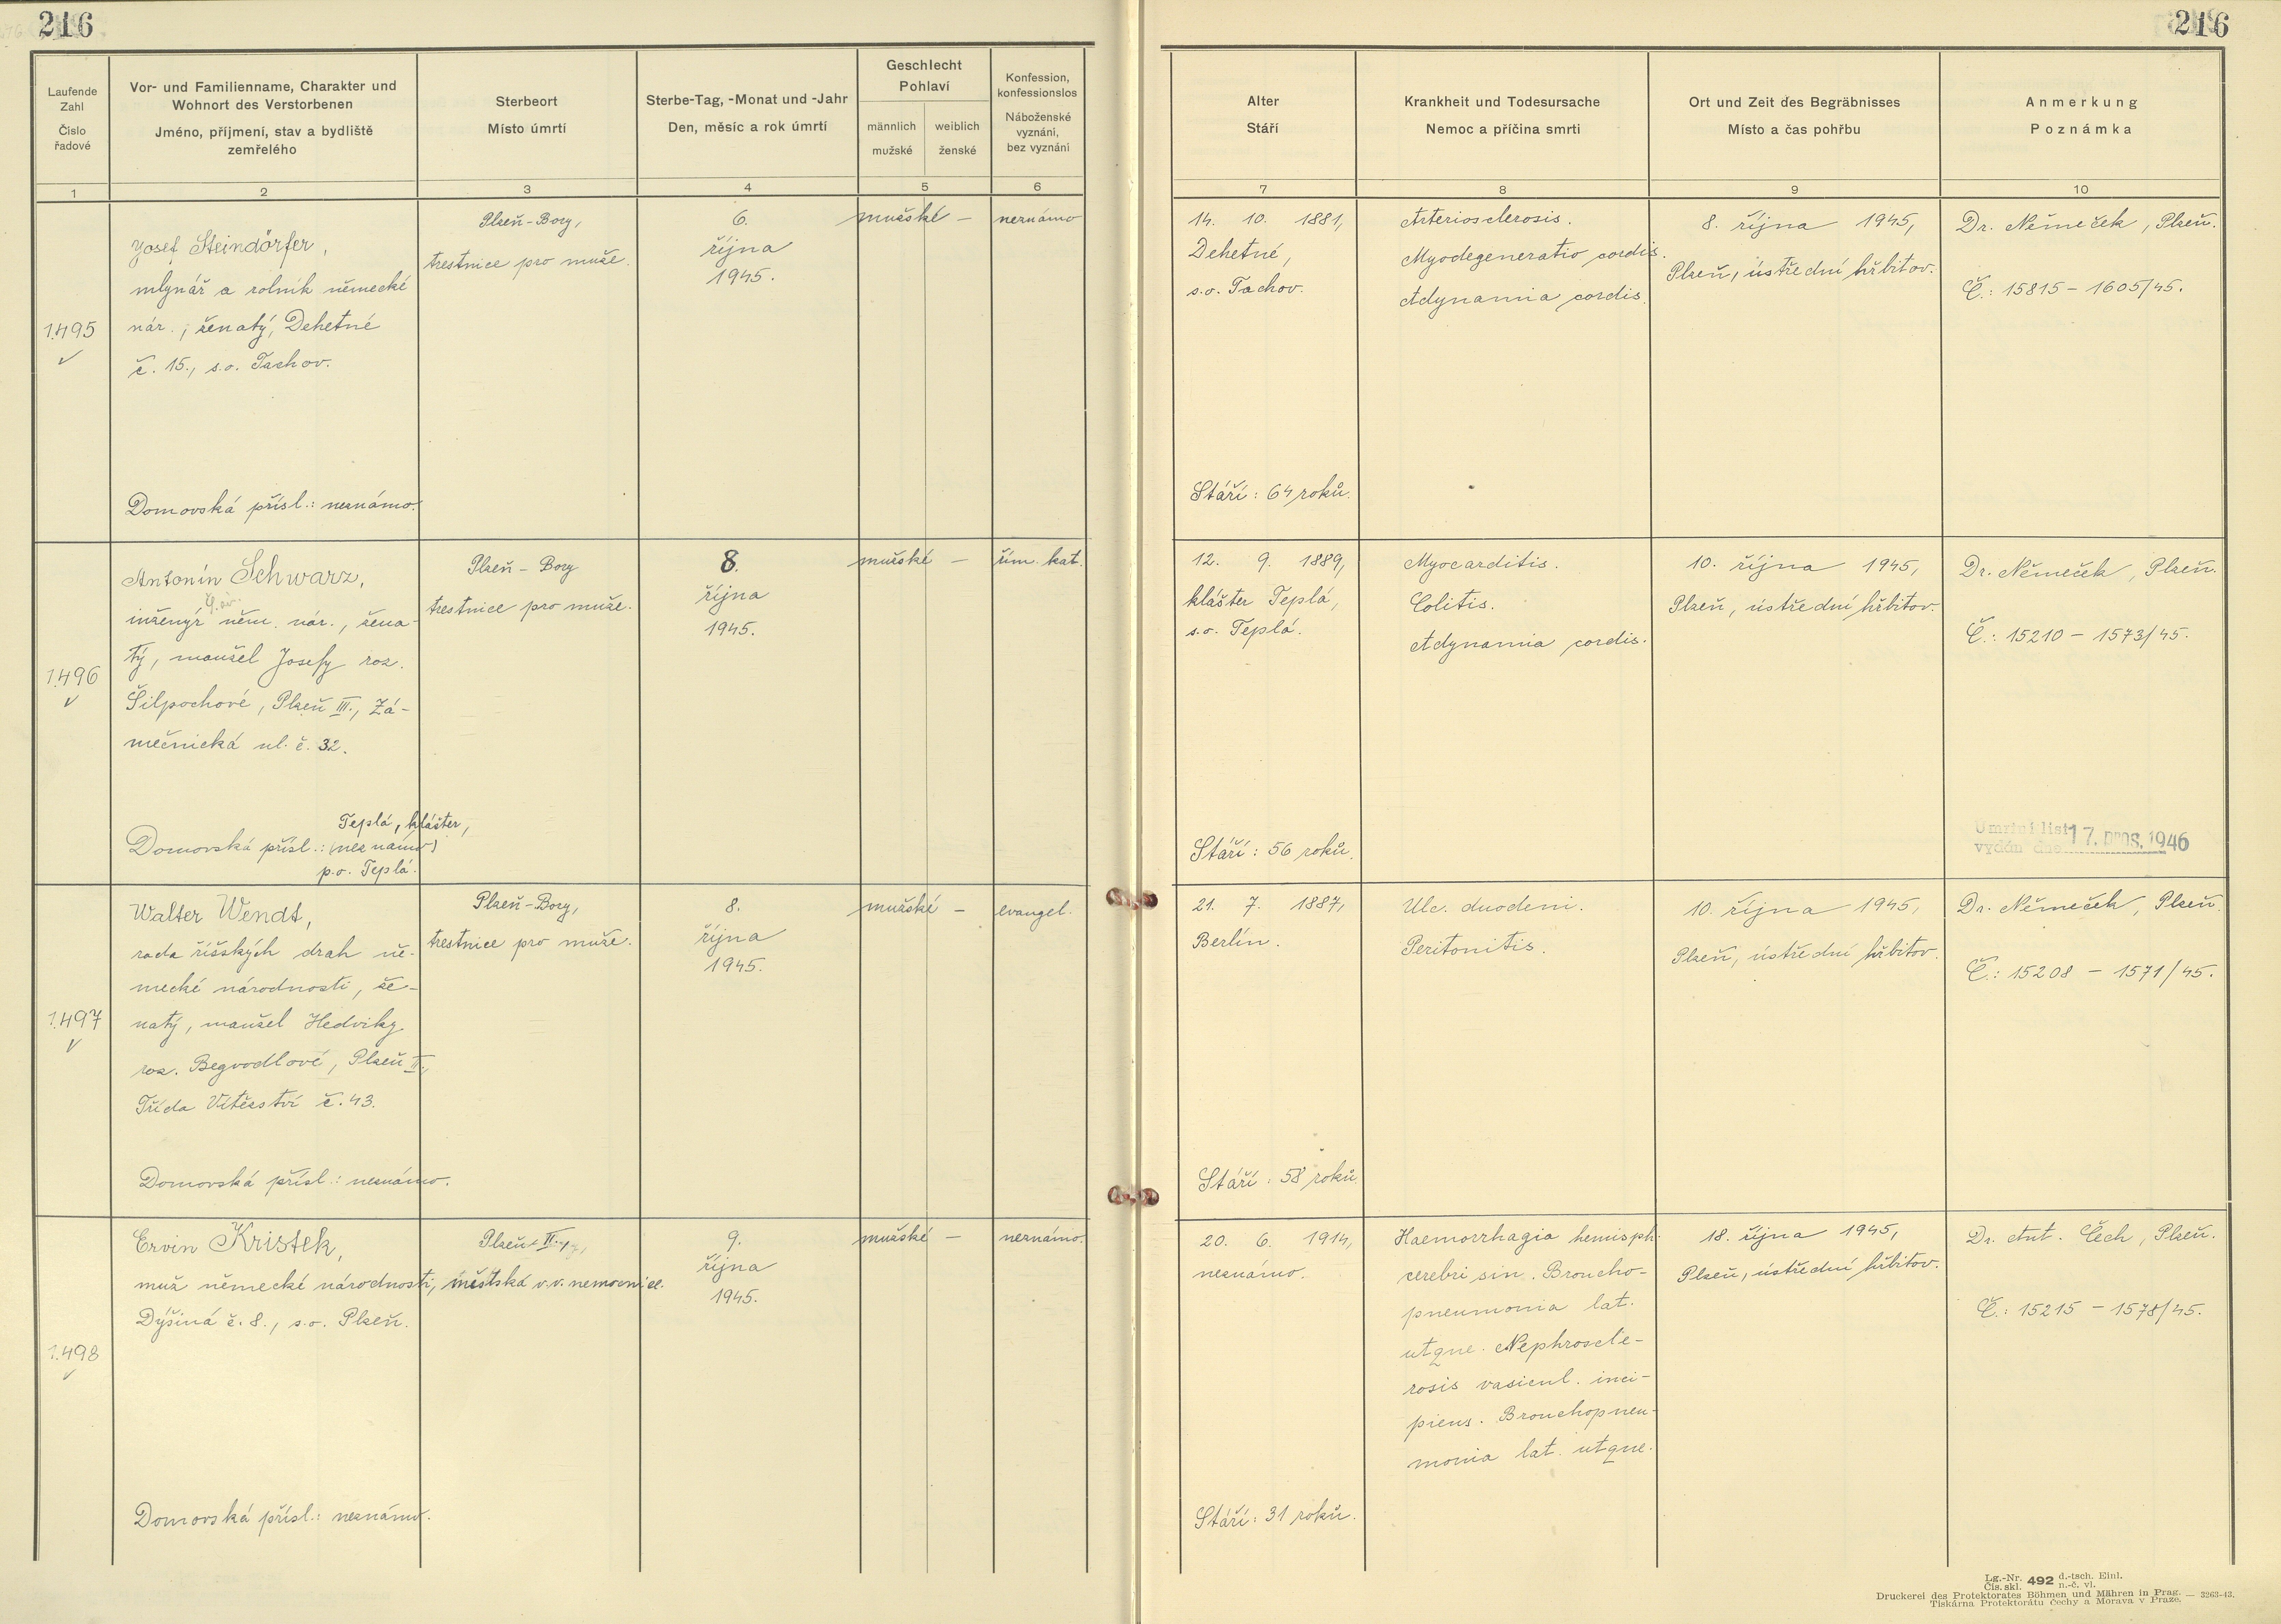 216
216
Laufende
Zahl
Číslo
řadové
Vor- und Familienname, Charakter und
Wohnort des Verstorbenen
Jméno, příjmení, stav a bydliště
zemřelého
Sterbeort
Místo úmrtí
Sterbe-Tag, -Monat und -Jahr
Den, měsíc a rok úmrtí
Geschlecht
Pohlaví
männlich
mužské
weiblich
ženské
Konfession,
konfessionslos
Náboženské
vyznání,
bez vyznání
Alter
Stáří
Krankheit und Todesursache
Nemoc a příčina smrti
Ort und Zeit des Begräbnisses
Místo a čas pohřbu
Anmerkung
Poznámka
1
2
3
4
5
6
7
8
9
10
1.495
Josef Steindörfer,
mlynář a rolník německé
nár., ženatý, Dehetné
č. 15., s.o. Tachov.
Domovská přísl.: neznámo.
Plzeň-Bory,
trestnice pro muže.
6.
října
1945.
mužské —
neznámo
14. 10. 1881,
Dehetné,
s.o. Tachov.
Stáří: 64 roků.
Arteriosclerosis.
Myodegeneratio cordis.
Adynamia cordis.
8. října 1945,
Plzeň, ústřední hřbitov.
Dr. Němeček, Plzeň.
Č.: 15815 - 1605/45.
1.496
Antonín Schwarz,
inženýr něm. nár., žena-
tý, manžel Josefy roz.
Šilpochové, Plzeň III., Zá-
mečnická ul. č. 32.
Teplá, klášter,
Domovská přísl.: (neznámo)
p.o. Teplá.
Plzeň - Bory
trestnice pro muže.
8.
října
1945.
mužské —
řím. kat.
12. 9. 1889,
klášter Teplá,
s.o. Teplá.
Stáří: 56 roků.
Myocarditis.
Colitis.
Adynamia cordis.
10. října 1945,
Plzeň, ústřední hřbitov.
Dr. Němeček, Plzeň.
Č.: 15210 - 1573/45.
Úmrtní list 17. pros. 1946
vydán dne
1.497
Walter Wendt,
rada říšských drah ně-
mecké národnosti, že-
natý, manžel Hedviky
roz. Begvodlové, Plzeň II.,
Třída Vítězství č. 43.
Domovská přísl.: neznámo.
Plzeň-Bory,
trestnice pro muže.
8.
října
1945.
mužské —
evangel.
21. 7. 1887,
Berlín.
Stáří: 58 roků
Ulc. duodeni.
Peritonitis.
10. října 1945,
Plzeň, ústřední hřbitov.
Dr. Němeček, Plzeň.
Č.: 15208 - 1571/45.
1.498
Ervin Kristek,
muž německé národnosti,
Dýšiná č. 8., s.o. Plzeň.
Domovská přísl.: neznámo.
Plzeň II.
městská v.v. nemocnice.
9.
října
1945.
mužské —
neznámo.
20. 6. 1914,
neznámo.
Stáří: 31 roků.
Haemorrhagia hemisph.
cerebri sin. Broncho-
pneumonia lat.
utque. Nephroscle-
rosis vasicul. inci-
piens. Bronchopneu-
monia lat. utque.
18. října 1945,
Plzeň, ústřední hřbitov.
Dr. Ant. Čech, Plzeň.
Č.: 15215 - 1578/45.
Lg.-Nr. 492 d.-tsch. Einl.
Čís. skl. n.-č. vl.
Druckerei des Protektorates Böhmen und Mähren in Prag. — 3263-43.
Tiskárna Protektorátu Čechy a Morava v Praze.